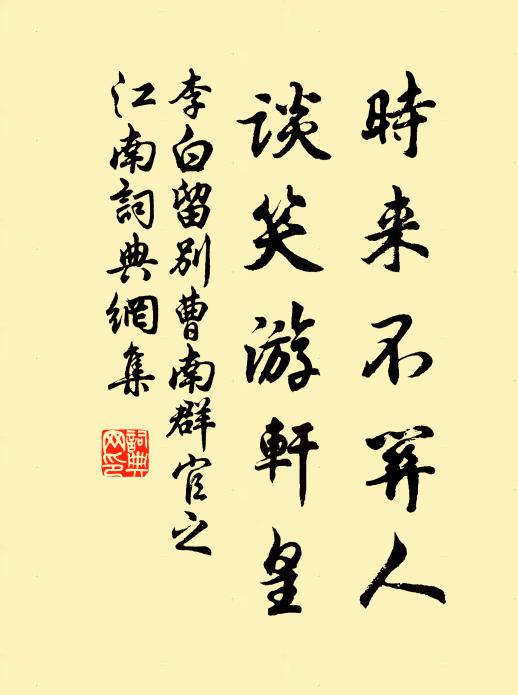 時来不關人
談笑游軒皇
李白留别曹南群官之
江南詞典網集
詞典
网印